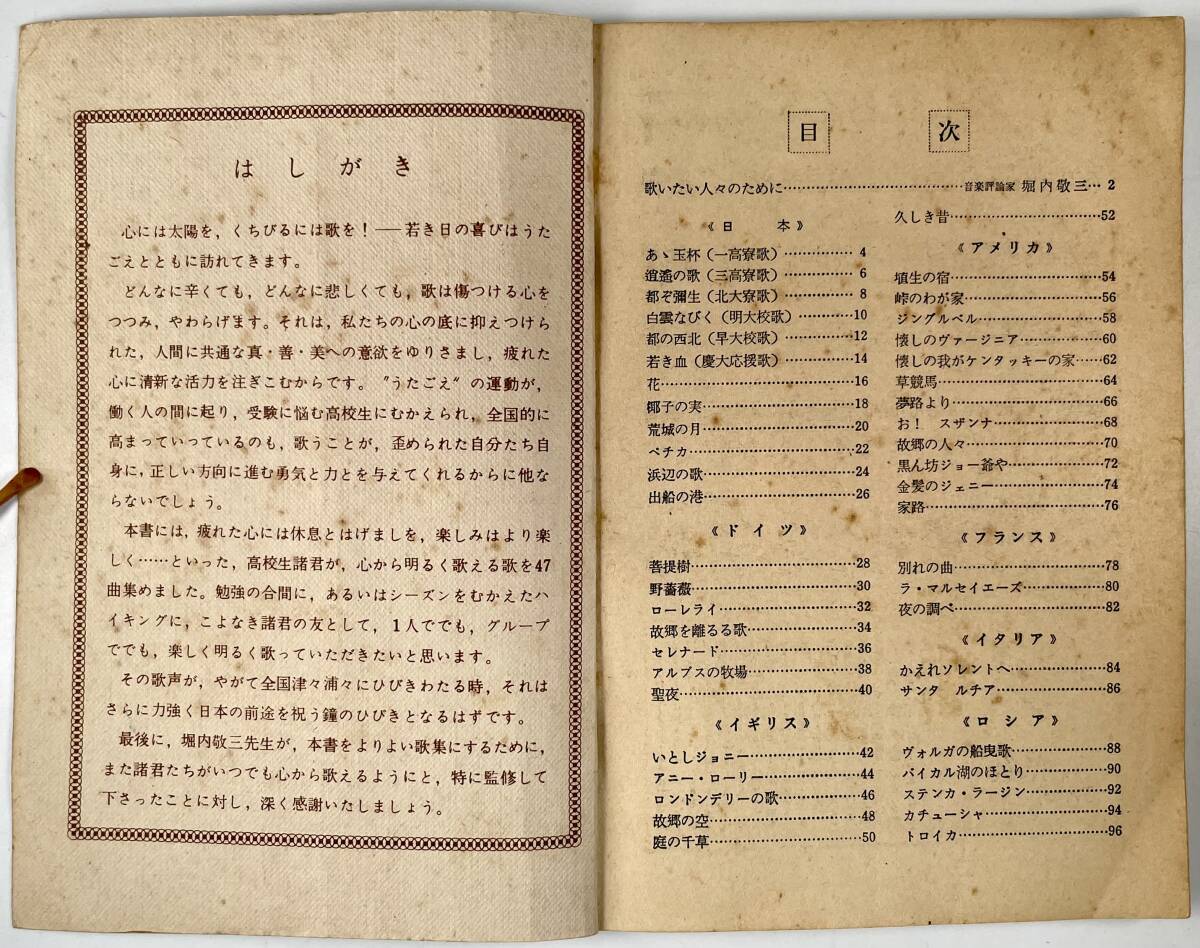 はしがき
心には太陽を，くちびるには歌を！──若き日の喜びはうた
ごえとともに訪れてきます。
どんなに辛くても，どんなに悲しくても，歌は傷つける心を
つつみ，やわらげます。それは，私たちの心の底に抑えつけら
れた，人間に共通な真・善・美への意欲をゆりさまし，疲れた
心に清新な活力を注ぎこむからです。〝うたごえ〟の運動が，
働く人の間に起り，受験に悩む高校生にむかえられ，全国的に
高まっていっているのも，歌うことが，歪められた自分たち自
身に，正しい方向に進む勇気と力とを与えてくれるからに他な
らないでしょう。
本書には，疲れた心には休息とはげましを，楽しみはより楽
しく……といった，高校生諸君が，心から明るく歌える歌を47
曲集めました。勉強の合間に，あるいはシーズンをむかえたハ
イキングに，こよなき諸君の友として，1人ででも，グループ
ででも，楽しく明るく歌っていただきたいと思います。
その歌声が，やがて全国津々浦々にひびきわたる時，それは
さらに力強く日本の前途を祝う鐘のひびきとなるはずです。
最後に，堀内敬三先生が，本書をよりよい歌集にするために，
また諸君たちがいつでも心から歌えるようにと，特に監修して
下さったことに対し，深く感謝いたしましょう。
目次
歌いたい人々のために……………………音楽評論家 堀内敬三…2
《日本》
あゝ玉杯（一高寮歌）……………4
逍遙の歌（三高寮歌）……………6
都ぞ彌生（北大寮歌）……………8
白雲なびく（明大校歌）…………10
都の西北（早大校歌）……………12
若き血（慶大応援歌）……………14
花……………………………16
椰子の実……………………………18
荒城の月……………………………20
ペチカ……………………………22
浜辺の歌……………………………24
出船の港……………………………26
《ドイツ》
菩提樹……………………………28
野薔薇……………………………30
ローレライ……………………………32
故郷を離るる歌……………………34
セレナード……………………………36
アルプスの牧場……………………38
聖夜……………………………40
《イギリス》
いとしジョニー……………………42
アニー・ローリー…………………44
ロンドンデリーの歌………………46
故郷の空……………………………48
庭の千草……………………………50
久しき昔……………………………52
《アメリカ》
埴生の宿……………………………54
峠のわが家……………………………56
ジングルベル……………………………58
懐しのヴァージニア………………60
懐しの我がケンタッキーの家……62
草競馬……………………………64
夢路より……………………………66
お！　スザンナ……………………68
故郷の人々……………………………70
黒ん坊ジョー爺や…………………72
金髪のジェニー……………………74
家路……………………………76
《フランス》
別れの曲……………………………78
ラ・マルセイエーズ………………80
夜の調べ……………………………82
《イタリア》
かえれソレントへ…………………84
サンタ　ルチア……………………86
《ロシア》
ヴォルガの船曳歌…………………88
バイカル湖のほとり………………90
ステンカ・ラージン………………92
カチューシャ……………………………94
トロイカ……………………………96